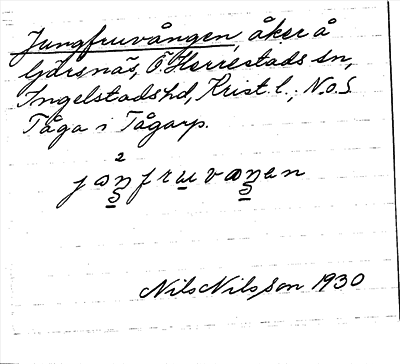 Jungfruvången, åker å
Gärsnäs, Ö. Herrestads sn,
Ingelstads hd, Krist. l.; N.o.S
Tåga i Tågarp.
2
Nils Nilsson 1930